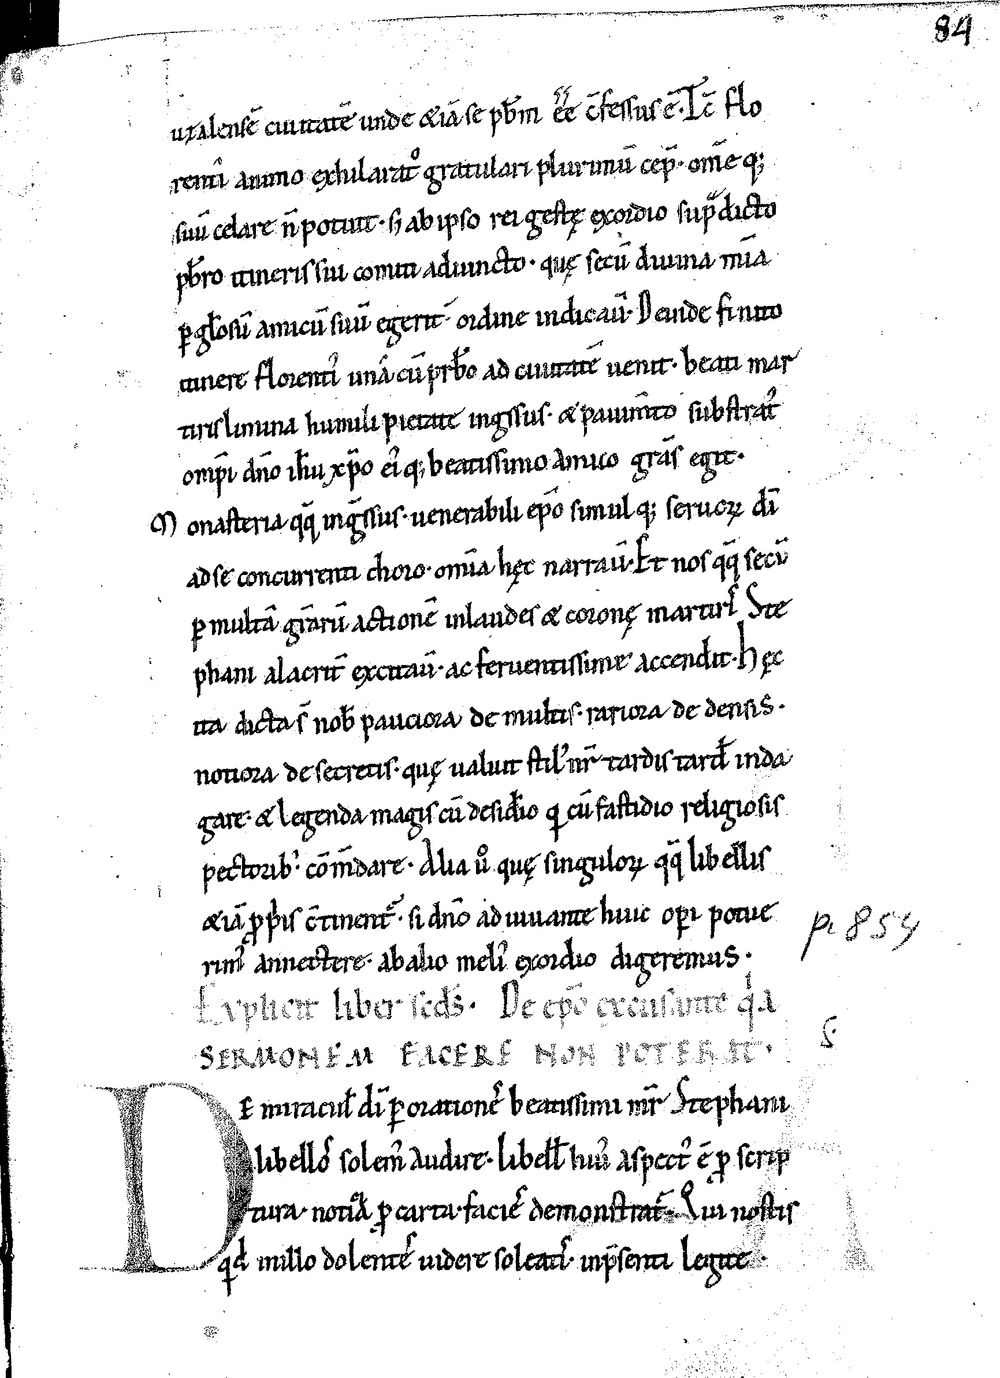 84
uzalensē ciuitatē unde &iā se pb̄m ēē c̄fessus ē. Tc̄ flo
renti animo exhilarat᷒ gratulari plurimū cep̄. om̄e q;
suū celare n̄ potuit. s; ab ipso rei gestę exordio sup̄dicto
pb̄ro itineris sui comiti adiuncto. quę secū diuina mīa
ꝑ gl̄osū amicū suū egerit ordine indicaū. Deinde finito
itinere florenti᷒ unā cū prb̄o ad ciuitatē uenit. beati mar
tiris limina humili pietate inḡssus. & pauim̄to substrat᷒
omp̄i dn̄o ih̄u xp̄o ei᷒q; beatissimo amico grā̄s egit.
Monasteria qq̄ inḡssus. uenerabili ep̄o simul q; seruoꝝ dī
ad se concurrenti choro. om̄ia hęc narraū. Et nos qq̄ secū
ꝑ multā gr̄arū actionē in laudes & coronę martirī Ste
phani alacrit̄ excitaū. ac feruentissime accendit. Hęc
ita dicta s̄ nob̄ pauciora de multis. rariora de densis.
notiora de secretis. quę ualuit stil᷒ nr̄ tardis tard᷒ inda
gare. & legenda magis cū desid̄io q̄ cū fastidio religiosis
pectorib᷒ com̄dare. Alia ů quę singuloꝝ qq̄ libellis
&iā ꝓp̄is c̄tinent᷒. si dn̄o adiuuante huic op̄i potue
rim᷒ annectere. ab alio meli᷒ exordio digeremus.
Explicit liber sc̄ds. De ep̄o excusante q̇a
SERMONEM FACERE NON POTERIT.
DE miracul̄ dī ꝑ orationē beatissimi mr̄ Stephani
libellō solem᷒ audire. libell̄ hui᷒ aspect᷒ ē ꝓ scrip
tura. notitīa ꝓ carta. faciē demonstrat̄. Qui nostis
qd̄ in illo dolentē uidere soleatī. in p̄senti legite.
p. 854
S.